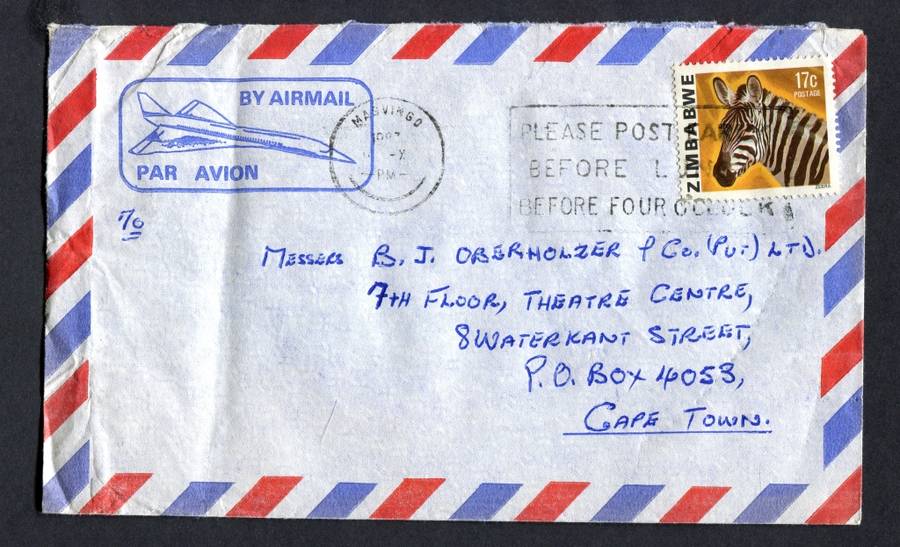 BY AIRMAIL
PAR AVION
MASVINGO
X
PM
PLEASE POST
BEFORE
BEFORE FOUR O'CLOCK
ZIMBABWE
17c
POSTAGE
ZEBRA
To
MESSERS B. J. OBERHOLZER & Co. (PVT) LTD.
7TH FLOOR, THEATRE CENTRE,
8 WATERKANT STREET,
P.O. BOX 4053,
CAPE TOWN.